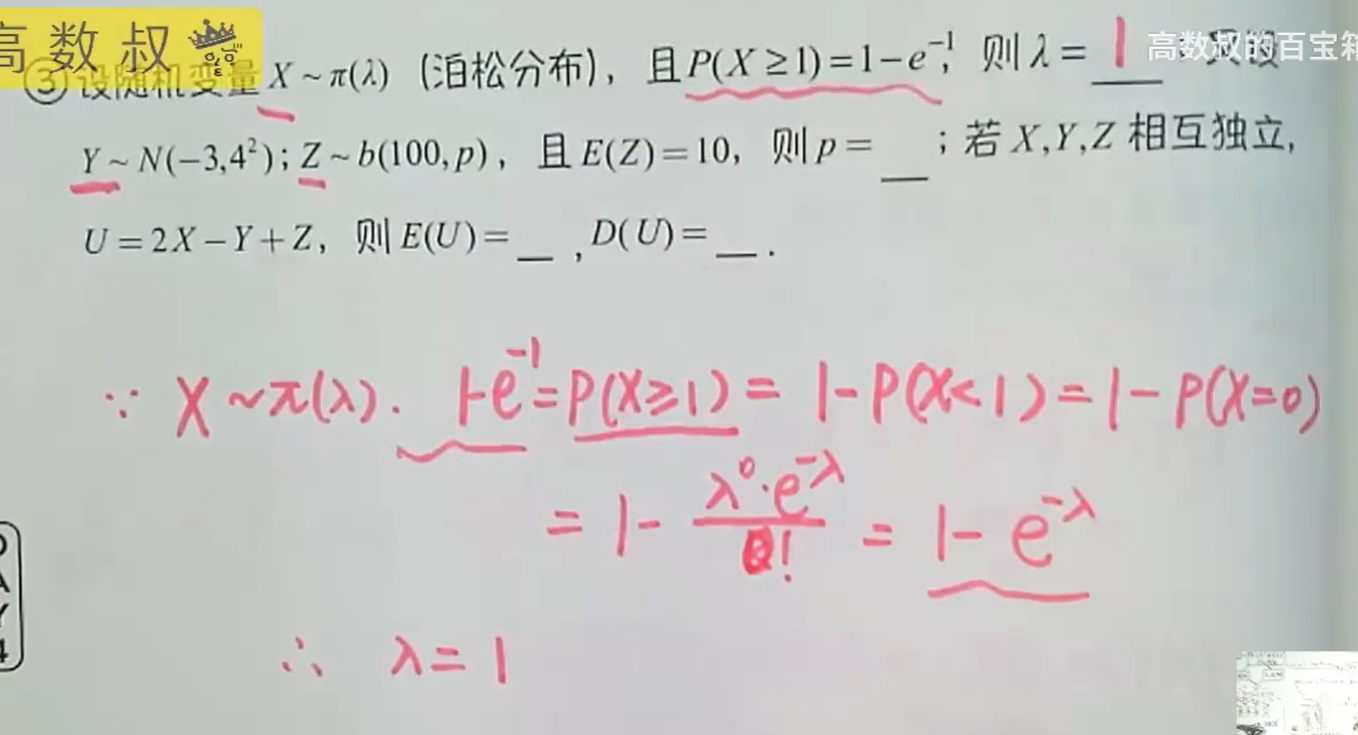 高数叔
③设随机变量 X ~ π(λ) (泊松分布), 且 P(X ≥ 1) = 1 − e⁻¹, 则 λ = 1
高数叔的百宝箱
Y ~ N(−3,4²); Z ~ b(100, p), 且 E(Z) = 10, 则 p = __ ; 若 X,Y,Z 相互独立,
U = 2X − Y + Z, 则 E(U) = __ , D(U) = __ .
∵ X ~ π(λ). 1-e⁻¹ = P(X≥1) = 1 - P(X<1) = 1 - P(X=0)
= 1 - λ⁰·e^-λ / 0! = 1 - e^-λ
∴ λ = 1